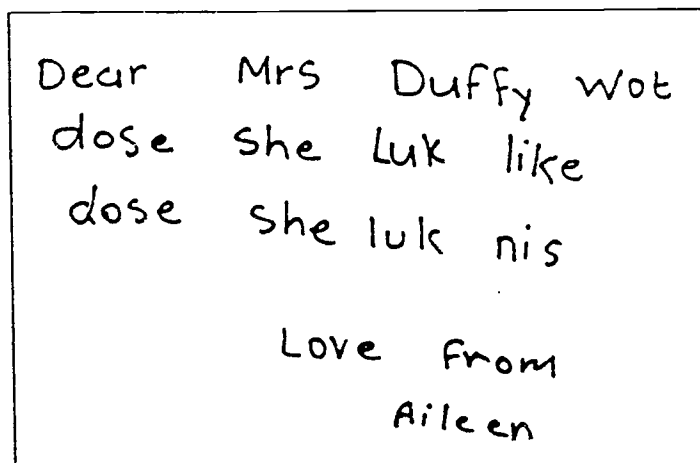 Dear Mrs Duffy Wot
dose she Luk like
dose she luk nis
Love From
Aileen